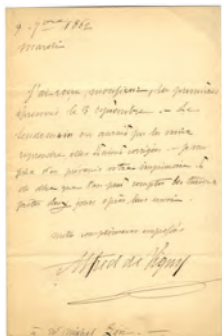 9 7bre 1862
Mardi
J'ai reçu, monsieur, les premières
épreuves le 3 septembre. — Le
lendemain on aurait pu les
reprendre, elles étaient corrigées. — je vous
prie d'en prévenir votre imprimerie &
de dire que l'on peut compter les trouver
prêtes deux jours après leur envoi.
mille compliments empressés
Alfred de Vigny
à Mr Michel Lévy. —